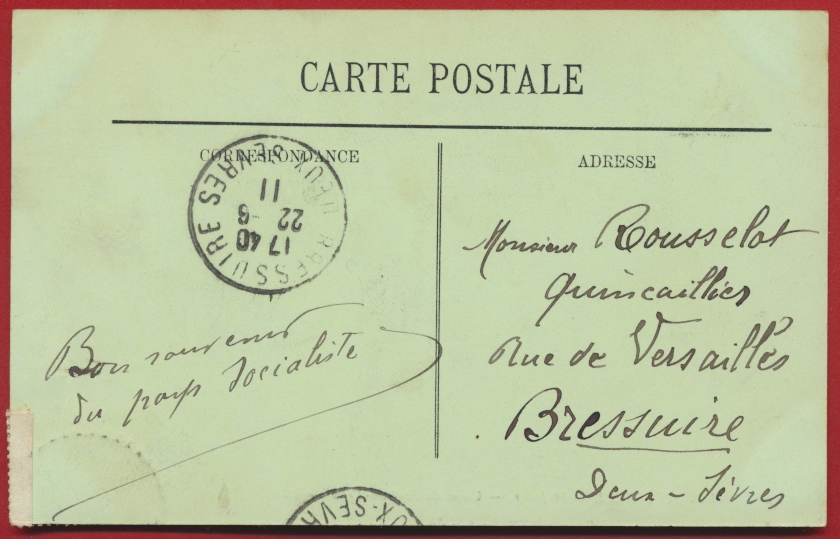 CARTE POSTALE
CORRESPONDANCE
ADRESSE
BRESSUIRE
DEUX-SEVRES
17 40
22-6
11
Monsieur Rousselot
Quincaillier
Rue de Versailles
Bressuire
Deux-Sèvres
Bon souvenir
du pays Socialiste
UX-SEVR